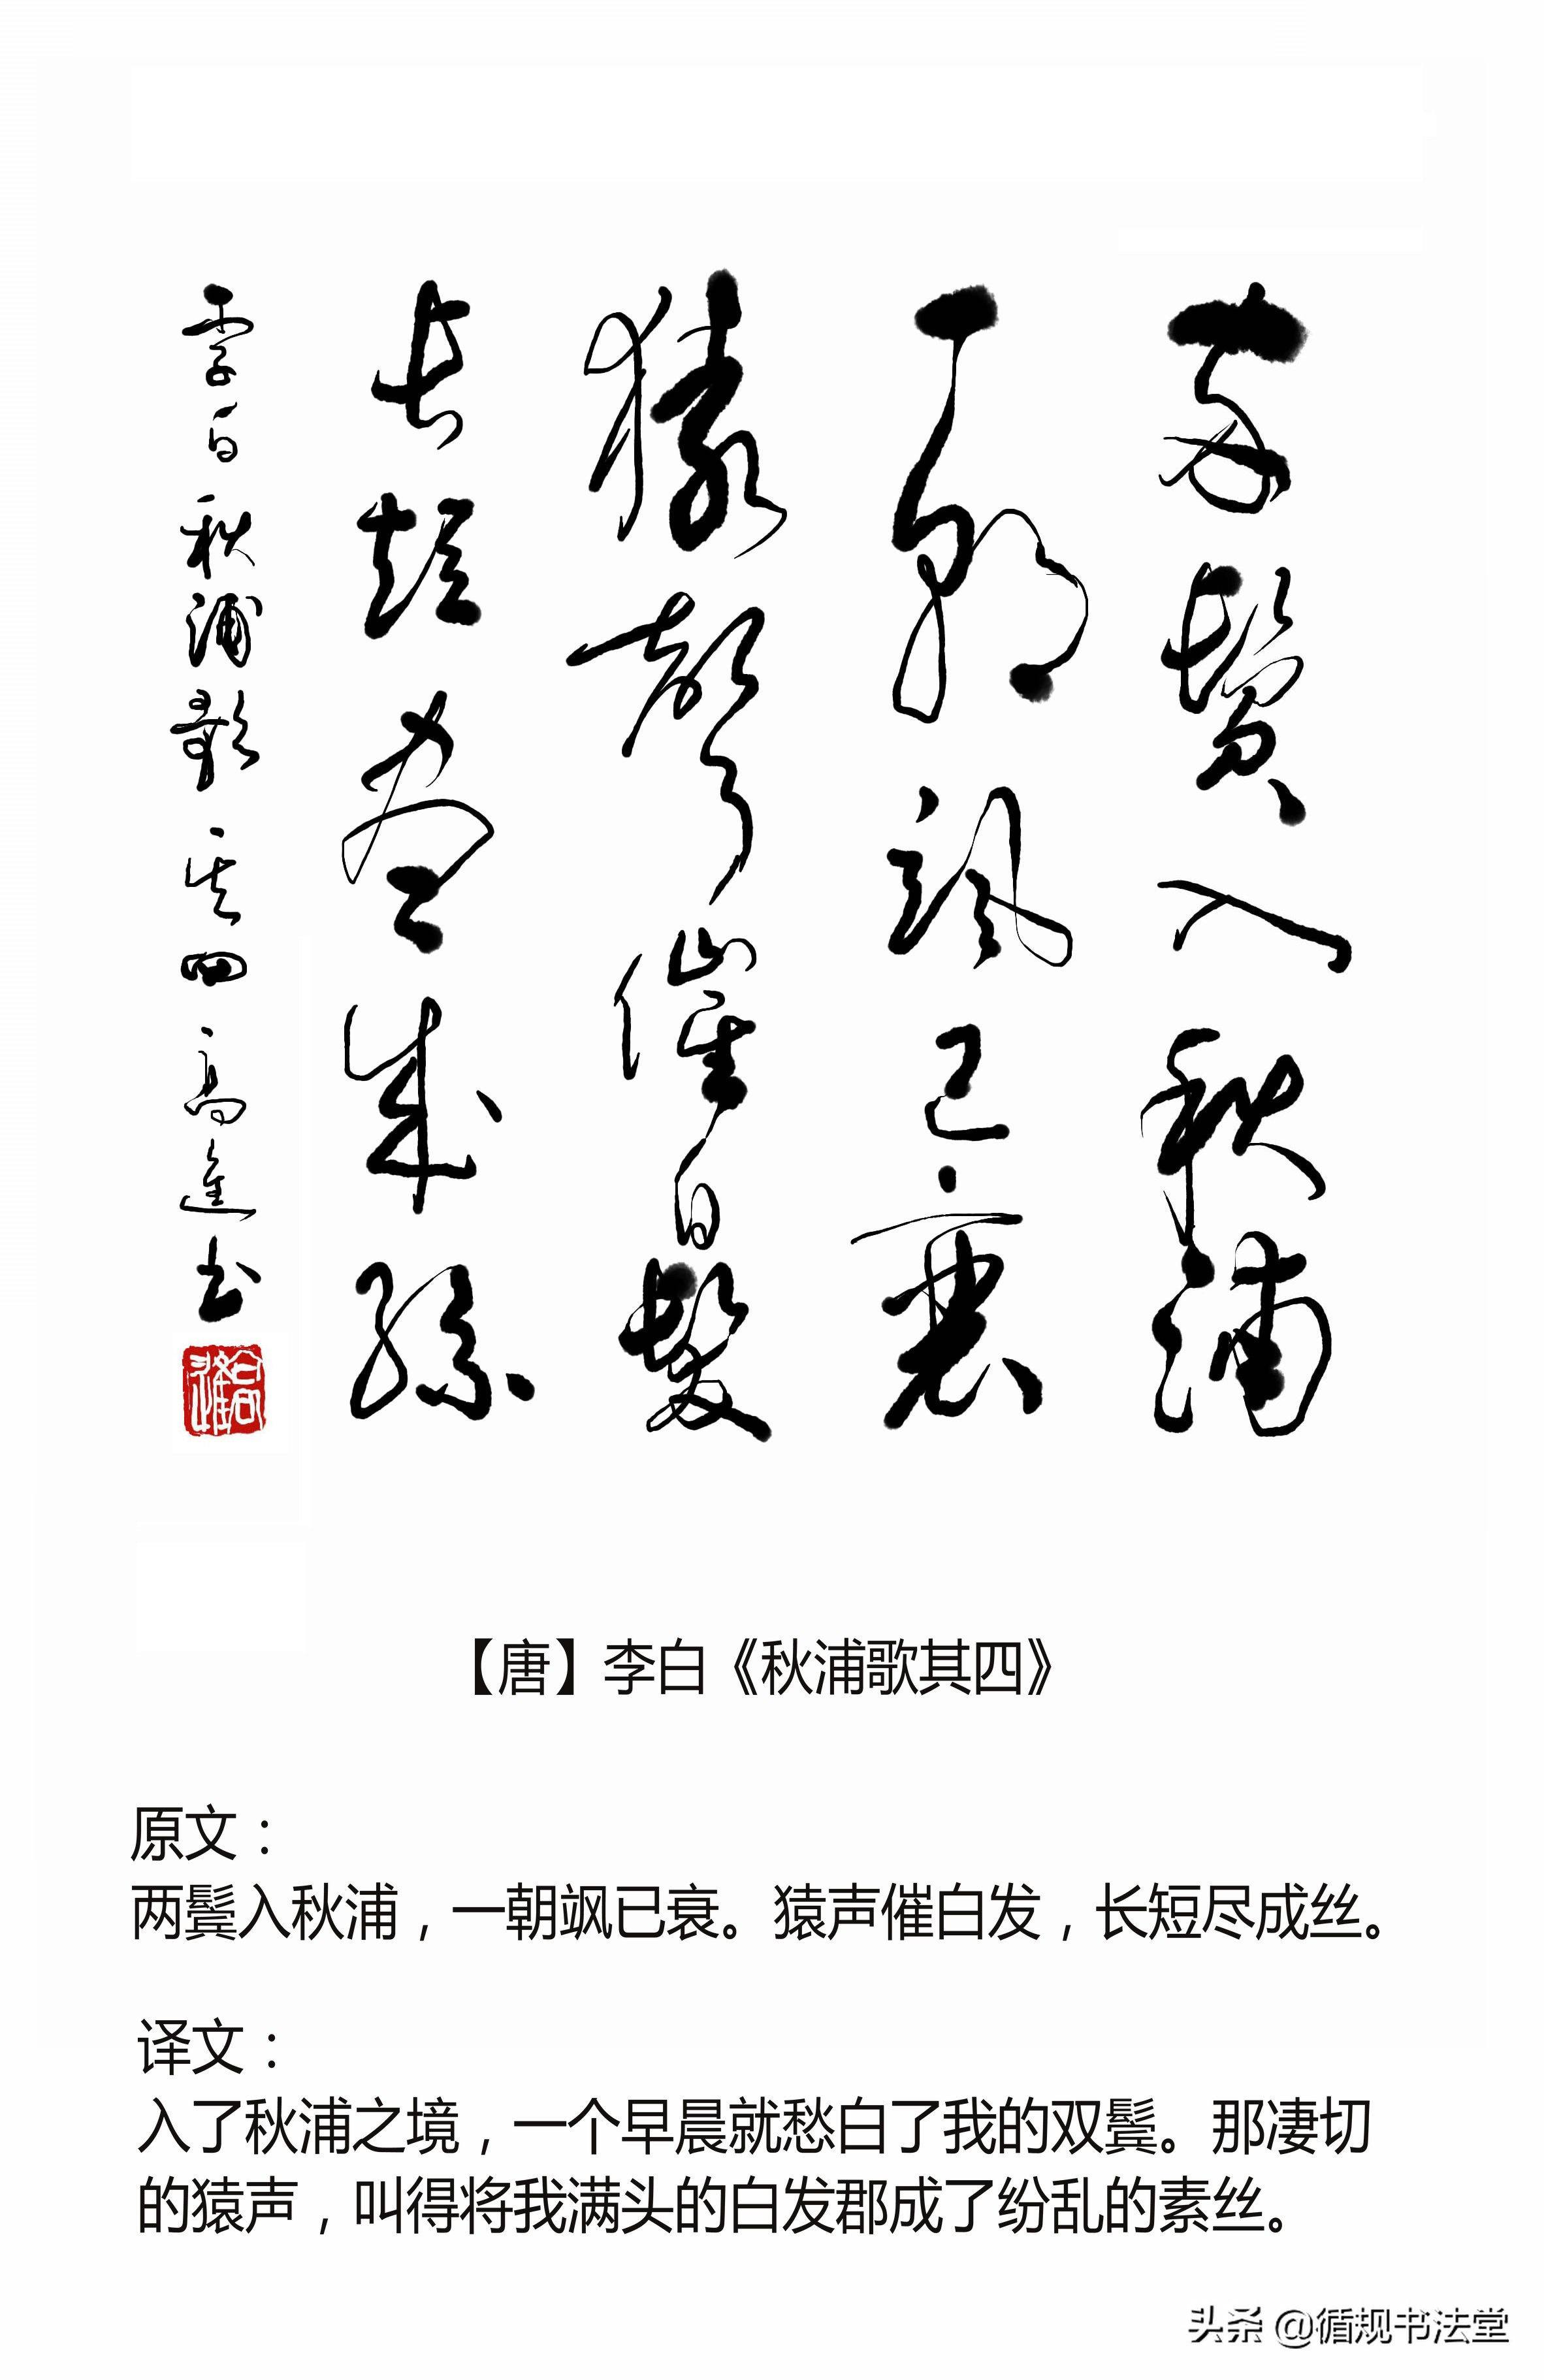 兩鬢入秋浦
一朝颯已衰
猿聲催白髮
長短盡成絲
李白秋浦歌其四高進书
高進
【唐】李白《秋浦歌其四》
原文：
两鬓入秋浦，一朝飒已衰。猿声催白发，长短尽成丝。
译文：
入了秋浦之境，一个早晨就愁白了我的双鬓。那凄切
的猿声，叫得将我满头的白发郡成了纷乱的素丝。
头条 @循规书法堂